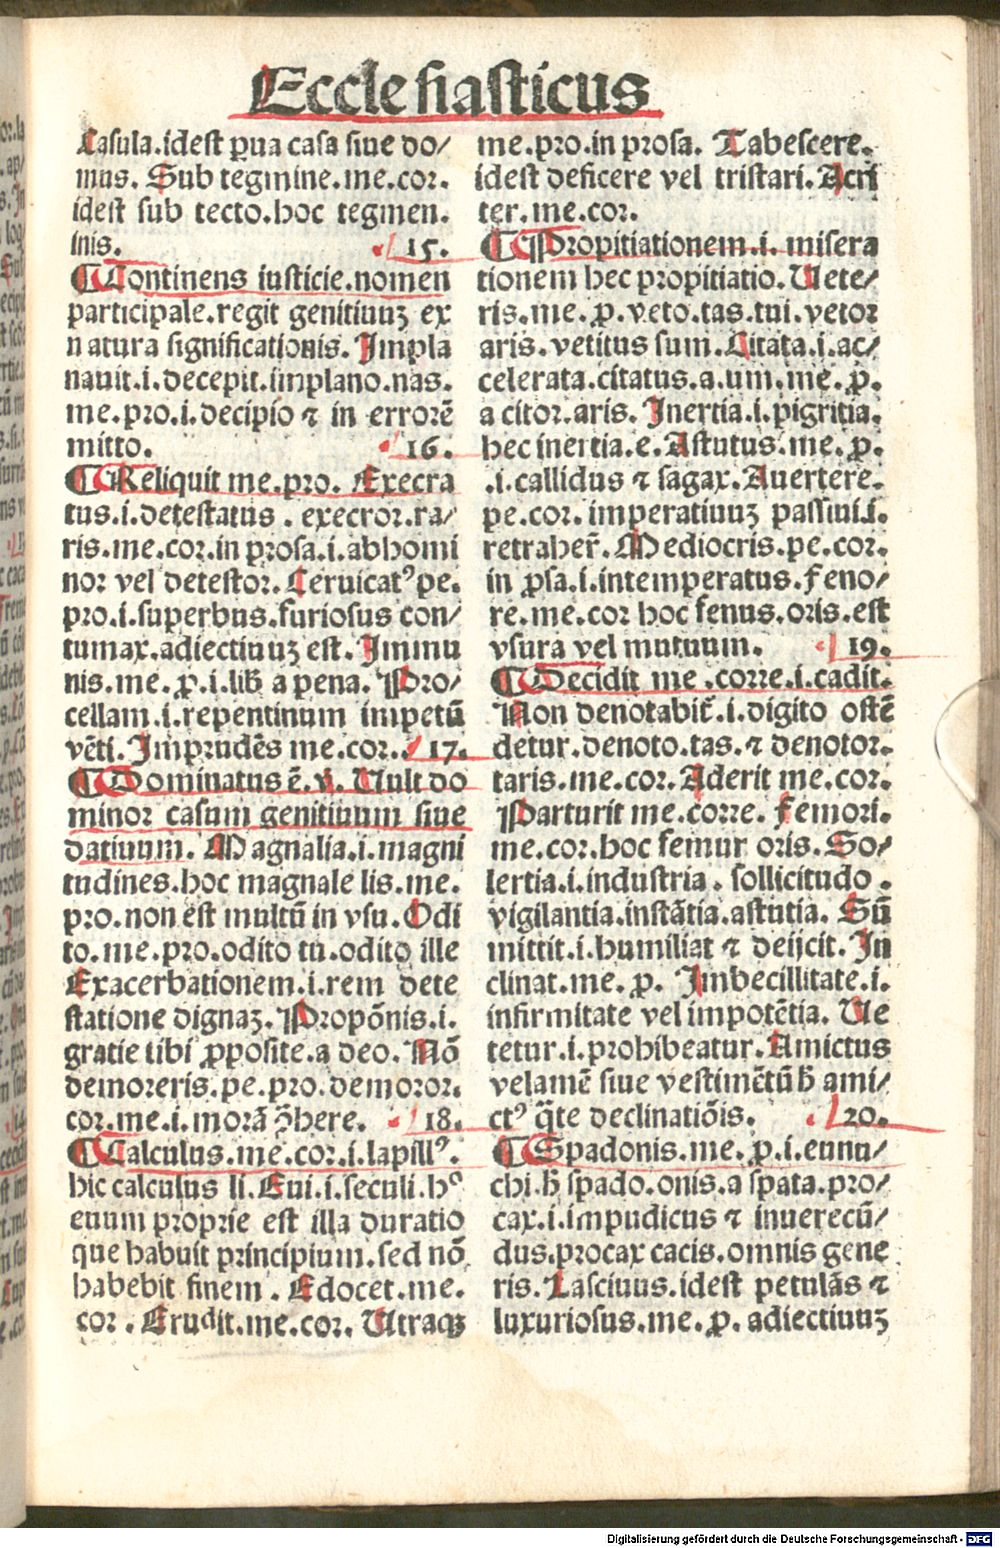 Ecclesiasticus
Casula.idest ꝑua casa siue do/
mus. Sub tegmine.me.cor.
idest sub tecto.hoc tegmen.
inis. 15.
¶ Continens iusticie.nomen
participale.regit genitiuuꝫ ex
natura significationis. Impla
nauit.i.decepit.implano.nas.
me.pro.i.decipio ⁊ in errorē
mitto. 16.
¶ Reliquit me.pro. Execra
tus.i.detestatus . execror.ra/
ris.me.cor.in prosa.i.abhomi
nor vel detestor. Ceruicatꝰ pe.
pro.i.superbus.furiosus con/
tumax.adiectiuuꝫ est. Immu
nis.me.ꝓ.i.lib̄ a pena. Pro/
cellam.i.repentinum impetū
vēti. Imprudēs me.cor. 17.
¶ Dominatus ē.v̄. Uult do
minor casum genitiuum siue
datiuum. Magnalia.i.magni
tudines.hoc magnale lis.me.
pro.non est multū in vsu. Odi
to.me.pro.odito tu.odito ille
Exacerbationem.i.rem dete
statione dignaꝫ. Propōnis.i.
gratie tibi ꝓposite.a deo. Nō
demoreris.pe.pro.demoror.
cor.me.i.morā ꝯ̄here. 18.
¶ Calculus.me.cor.i.lapillꝰ.
hic calculus li. Eui.i.seculi.hº
euum proprie est illa duratio
que habuit principium.sed nō
habebit finem . Edocet.me.
cor . Erudit.me.cor. Utraqꝫ
me.pro.in prosa. Tabescere.
idest deficere vel tristari. Acri
ter.me.cor.
¶ Propitiationem.i. misera
tionem hec propitiatio. Uete/
ris.me.ꝓ.veto.tas.tui.vetor
aris.vetitus sum. Citata.i.ac/
celerata.citatus.a.um.me.ꝓ.
a citor.aris. Inertia.i.pigritia.
hec inertia.e. Astutus.me.ꝓ.
.i.callidus ⁊ sagax. Auertere.
pe.cor.imperatiuuꝫ passiui.i.
retraher̄. Mediocris.pe.cor.
in ꝓsa.i.intemperatus. Feno/
re.me.cor hoc fenus.oris.est
vsura vel mutuum. 19.
¶ Decidit me .corre.i.cadit.
Non denotabit̄.i.digito ostē
detur.denoto.tas.⁊ denotor.
taris.me.cor. Aderit me.cor.
Parturit me.corre. Femori.
me.cor.hoc femur oris. So/
lertia.i.industria . sollicitudo .
vigilantia.instātia.astutia. Sū
mittit.i.humiliat ⁊ deijcit. In
clinat.me.ꝓ. Imbecillitate.i.
infirmitate vel impotētia. Ue
tetur.i.prohibeatur. Amictus
velamē siue vestimētū h̄ ami/
ctꝰ q̄te declinatiōis. 20.
¶ Spadonis.me.ꝓ.i.eunu/
chi.h̄ spado.onis.a spata.pro/
cax.i.impudicus ⁊ inuerecū/
dus.procax cacis.omnis gene
ris. Lasciuus.idest petulās ⁊
luxuriosus.me.ꝓ.adiectiuuꝫ
Digitalisierung gefördert durch die Deutsche Forschungsgemeinschaft - DFG